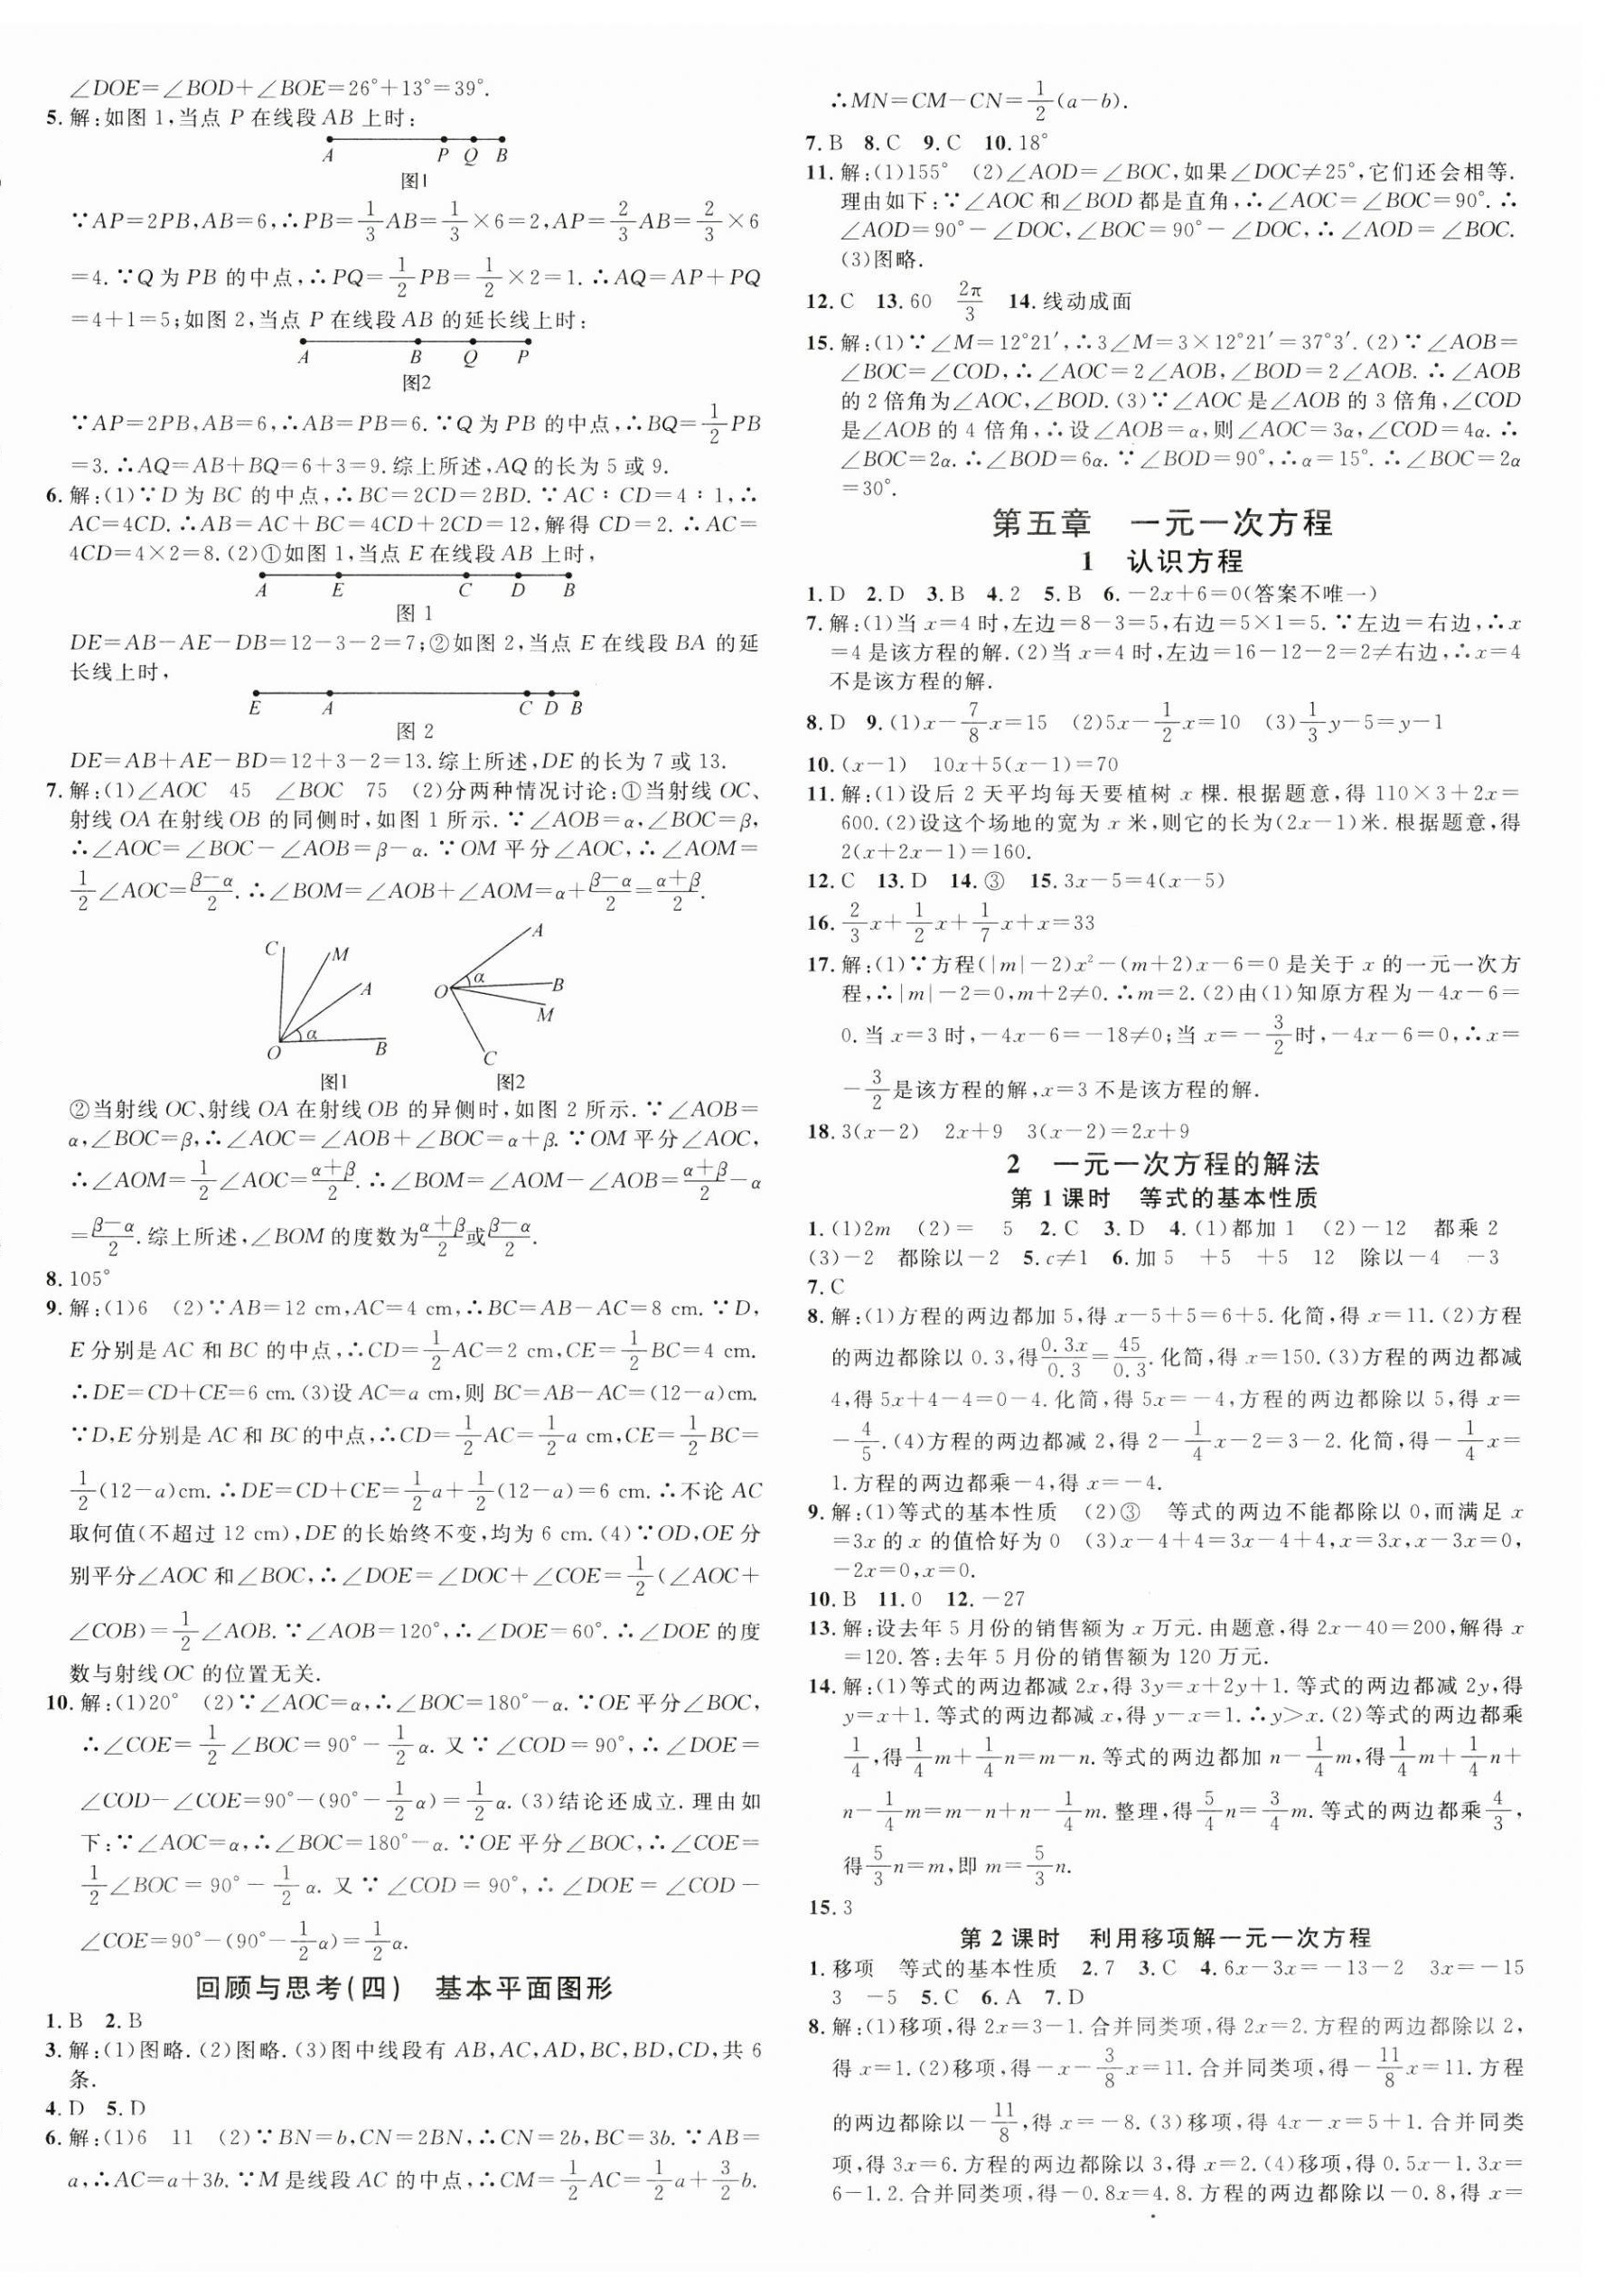 ∠DOE=∠BOD+∠BOE=26°+13°=39°.
5.解:如图1,当点P在线段AB上时:
A P Q B
图1
∵AP=2PB,AB=6,∴PB=1/3AB=1/3×6=2,AP=2/3AB=2/3×6
=4.∵Q为PB的中点,∴PQ=1/2PB=1/2×2=1.∴AQ=AP+PQ
=4+1=5;如图2,当点P在线段AB的延长线上时:
A B Q P
图2
∵AP=2PB,AB=6,∴AB=PB=6.∵Q为PB的中点,∴BQ=1/2PB
=3.∴AQ=AB+BQ=6+3=9.综上所述,AQ的长为5或9.
6.解:(1)∵D为BC的中点,∴BC=2CD=2BD.∵AC∶CD=4∶1,∴
AC=4CD.∴AB=AC+BC=4CD+2CD=12,解得CD=2.∴AC=
4CD=4×2=8.(2)①如图1,当点E在线段AB上时,
A E C D B
图1
DE=AB-AE-DB=12-3-2=7;②如图2,当点E在线段BA的延
长线上时,
E A C D B
图2
DE=AB+AE-BD=12+3-2=13.综上所述,DE的长为7或13.
7.解:(1)∠AOC 45 ∠BOC 75 (2)分两种情况讨论:①当射线OC、
射线OA在射线OB的同侧时,如图1所示.∵∠AOB=α,∠BOC=β,
∴∠AOC=∠BOC-∠AOB=β-α.∵OM平分∠AOC,∴∠AOM=
1/2∠AOC=(β-α)/2.∴∠BOM=∠AOB+∠AOM=α+(β-α)/2=(α+β)/2.
C M A α O B
图1
A α O B M C
图2
②当射线OC、射线OA在射线OB的异侧时,如图2所示.∵∠AOB=
α,∠BOC=β,∴∠AOC=∠AOB+∠BOC=α+β.∵OM平分∠AOC,
∴∠AOM=1/2∠AOC=(α+β)/2.∴∠BOM=∠AOM-∠AOB=(α+β)/2-α
=(β-α)/2.综上所述,∠BOM的度数为(α+β)/2或(β-α)/2.
8.105°
9.解:(1)6 (2)∵AB=12 cm,AC=4 cm,∴BC=AB-AC=8 cm.∵D,
E分别是AC和BC的中点,∴CD=1/2AC=2 cm,CE=1/2BC=4 cm.
∴DE=CD+CE=6 cm.(3)设AC=a cm,则BC=AB-AC=(12-a)cm.
∵D,E分别是AC和BC的中点,∴CD=1/2AC=1/2a cm,CE=1/2BC=
1/2(12-a)cm.∴DE=CD+CE=1/2a+1/2(12-a)=6 cm.∴不论AC
取何值(不超过12 cm),DE的长始终不变,均为6 cm.(4)∵OD,OE分
别平分∠AOC和∠BOC,∴∠DOE=∠DOC+∠COE=1/2(∠AOC+
∠COB)=1/2∠AOB.∵∠AOB=120°,∴∠DOE=60°.∴∠DOE的度
数与射线OC的位置无关.
10.解:(1)20° (2)∵∠AOC=α,∴∠BOC=180°-α.∵OE平分∠BOC,
∴∠COE=1/2∠BOC=90°-1/2α.又∵∠COD=90°,∴∠DOE=
∠COD-∠COE=90°-(90°-1/2α)=1/2α.(3)结论还成立.理由如
下:∵∠AOC=α,∴∠BOC=180°-α.∵OE平分∠BOC,∴∠COE=
1/2∠BOC=90°-1/2α.又∵∠COD=90°,∴∠DOE=∠COD-
∠COE=90°-(90°-1/2α)=1/2α.
回顾与思考(四) 基本平面图形
1.B 2.B
3.解:(1)图略.(2)图略.(3)图中线段有AB,AC,AD,BC,BD,CD,共6
条.
4.D 5.D
6.解:(1)6 11 (2)∵BN=b,CN=2BN,∴CN=2b,BC=3b.∵AB=
a,∴AC=a+3b.∵M是线段AC的中点,∴CM=1/2AC=1/2a+3/2b.
∴MN=CM-CN=1/2(a-b).
7.B 8.C 9.C 10.18°
11.解:(1)155° (2)∠AOD=∠BOC,如果∠DOC≠25°,它们还会相等.
理由如下:∵∠AOC和∠BOD都是直角,∴∠AOC=∠BOC=90°.∴
∠AOD=90°-∠DOC,∠BOC=90°-∠DOC,∴∠AOD=∠BOC.
(3)图略.
12.C 13.60 2π/3 14.线动成面
15.解:(1)∵∠M=12°21′,∴3∠M=3×12°21′=37°3′.(2)∵∠AOB=
∠BOC=∠COD,∴∠AOC=2∠AOB,∠BOD=2∠AOB.∴∠AOB
的2倍角为∠AOC,∠BOD.(3)∵∠AOC是∠AOB的3倍角,∠COD
是∠AOB的4倍角,∴设∠AOB=α,则∠AOC=3α,∠COD=4α.∴
∠BOC=2α.∴∠BOD=6α.∵∠BOD=90°,∴α=15°.∴∠BOC=2α
=30°.
第五章 一元一次方程
1 认识方程
1.D 2.D 3.B 4.2 5.B 6.-2x+6=0(答案不唯一)
7.解:(1)当x=4时,左边=8-3=5,右边=5×1=5.∵左边=右边,∴x
=4是该方程的解.(2)当x=4时,左边=16-12-2=2≠右边,∴x=4
不是该方程的解.
8.D 9.(1)x-7/8x=15 (2)5x-1/2x=10 (3)1/3y-5=y-1
10.(x-1) 10x+5(x-1)=70
11.解:(1)设后2天平均每天要植树x棵.根据题意,得110×3+2x=
600.(2)设这个场地的宽为x米,则它的长为(2x-1)米.根据题意,得
2(x+2x-1)=160.
12.C 13.D 14.③ 15.3x-5=4(x-5)
16.2/3x+1/2x+1/7x+x=33
17.解:(1)∵方程(|m|-2)x²-(m+2)x-6=0是关于x的一元一次方
程,∴|m|-2=0,m+2≠0.∴m=2.(2)由(1)知原方程为-4x-6=
0.当x=3时,-4x-6=-18≠0;当x=-3/2时,-4x-6=0,∴x=
-3/2是该方程的解,x=3不是该方程的解.
18.3(x-2) 2x+9 3(x-2)=2x+9
2 一元一次方程的解法
第1课时 等式的基本性质
1.(1)2m (2)= 5 2.C 3.D 4.(1)都加1 (2)-12 都乘2
(3)-2 都除以-2 5.c≠1 6.加5 +5 +5 12 除以-4 -3
7.C
8.解:(1)方程的两边都加5,得x-5+5=6+5.化简,得x=11.(2)方程
的两边都除以0.3,得0.3x/0.3=45/0.3.化简,得x=150.(3)方程的两边都减
4,得5x+4-4=0-4.化简,得5x=-4,方程的两边都除以5,得x=
-4/5.(4)方程的两边都减2,得2-1/4x-2=3-2.化简,得-1/4x=
1.方程的两边都乘-4,得x=-4.
9.解:(1)等式的基本性质 (2)③ 等式的两边不能都除以0,而满足x
=3x的x的值恰好为0 (3)x-4+4=3x-4+4,x=3x,x-3x=0,
-2x=0,x=0.
10.B 11.0 12.-27
13.解:设去年5月份的销售额为x万元.由题意,得2x-40=200,解得x
=120.答:去年5月份的销售额为120万元.
14.解:(1)等式的两边都减2x,得3y=x+2y+1.等式的两边都减2y,得
y=x+1.等式的两边都减x,得y-x=1.∴y>x.(2)等式的两边都乘
1/4,得1/4m+1/4n=m-n.等式的两边都加n-1/4m,得1/4m+1/4n+
n-1/4m=m-n+n-1/4m.整理,得5/4n=3/4m.等式的两边都乘4/3,
得5/3n=m,即m=5/3n.
15.3
第2课时 利用移项解一元一次方程
1.移项 等式的基本性质 2.7 3.C 4.6x-3x=-13-2 3x=-15
3 -5 5.C 6.A 7.D
8.解:(1)移项,得2x=3-1.合并同类项,得2x=2.方程的两边都除以2,
得x=1.(2)移项,得-x-3/8x=11.合并同类项,得-11/8x=11.方程
的两边都除以-11/8,得x=-8.(3)移项,得4x-x=5+1.合并同类
项,得3x=6.方程的两边都除以3,得x=2.(4)移项,得0.5x-1.3x=
6-1.2.合并同类项,得-0.8x=4.8.方程的两边都除以-0.8,得x=